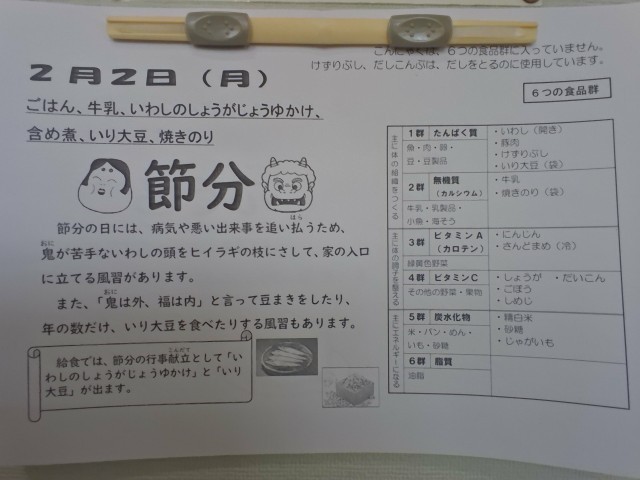 こんにゃくは、6つの食品群に入っていません。
けずりぶし、だしこんぶは、だしをとるのに使用しています。
2月2日（月）
6つの食品群
ごはん、牛乳、いわしのしょうがじょうゆかけ、
含め煮、いり大豆、焼きのり
節分
節分の日には、病気や悪い出来事を追い払うため、
鬼が苦手ないわしの頭をヒイラギの枝にさして、家の入口
に立てる風習があります。
また、「鬼は外、福は内」と言って豆まきをしたり、
年の数だけ、いり大豆を食べたりする風習もあります。
給食では、節分の行事献立として「い
わしのしょうがじょうゆかけ」と「いり
大豆」が出ます。
主に体の組織をつくる
1群 たんぱく質
魚・肉・卵・
豆・豆製品
・いわし（開き）
・豚肉
・けずりぶし
・いり大豆（袋）
2群 無機質
（カルシウム）
牛乳・乳製品・
小魚・海そう
・牛乳
・焼きのり（袋）
主に体の調子を整える
3群 ビタミンA
（カロテン）
緑黄色野菜
・にんじん
・さんどまめ（冷）
4群 ビタミンC
その他の野菜・果物
・しょうが ・だいこん
・ごぼう
・しめじ
主にエネルギーになる
5群 炭水化物
米・パン・めん・
いも・砂糖
・精白米
・砂糖
・じゃがいも
6群 脂質
油脂